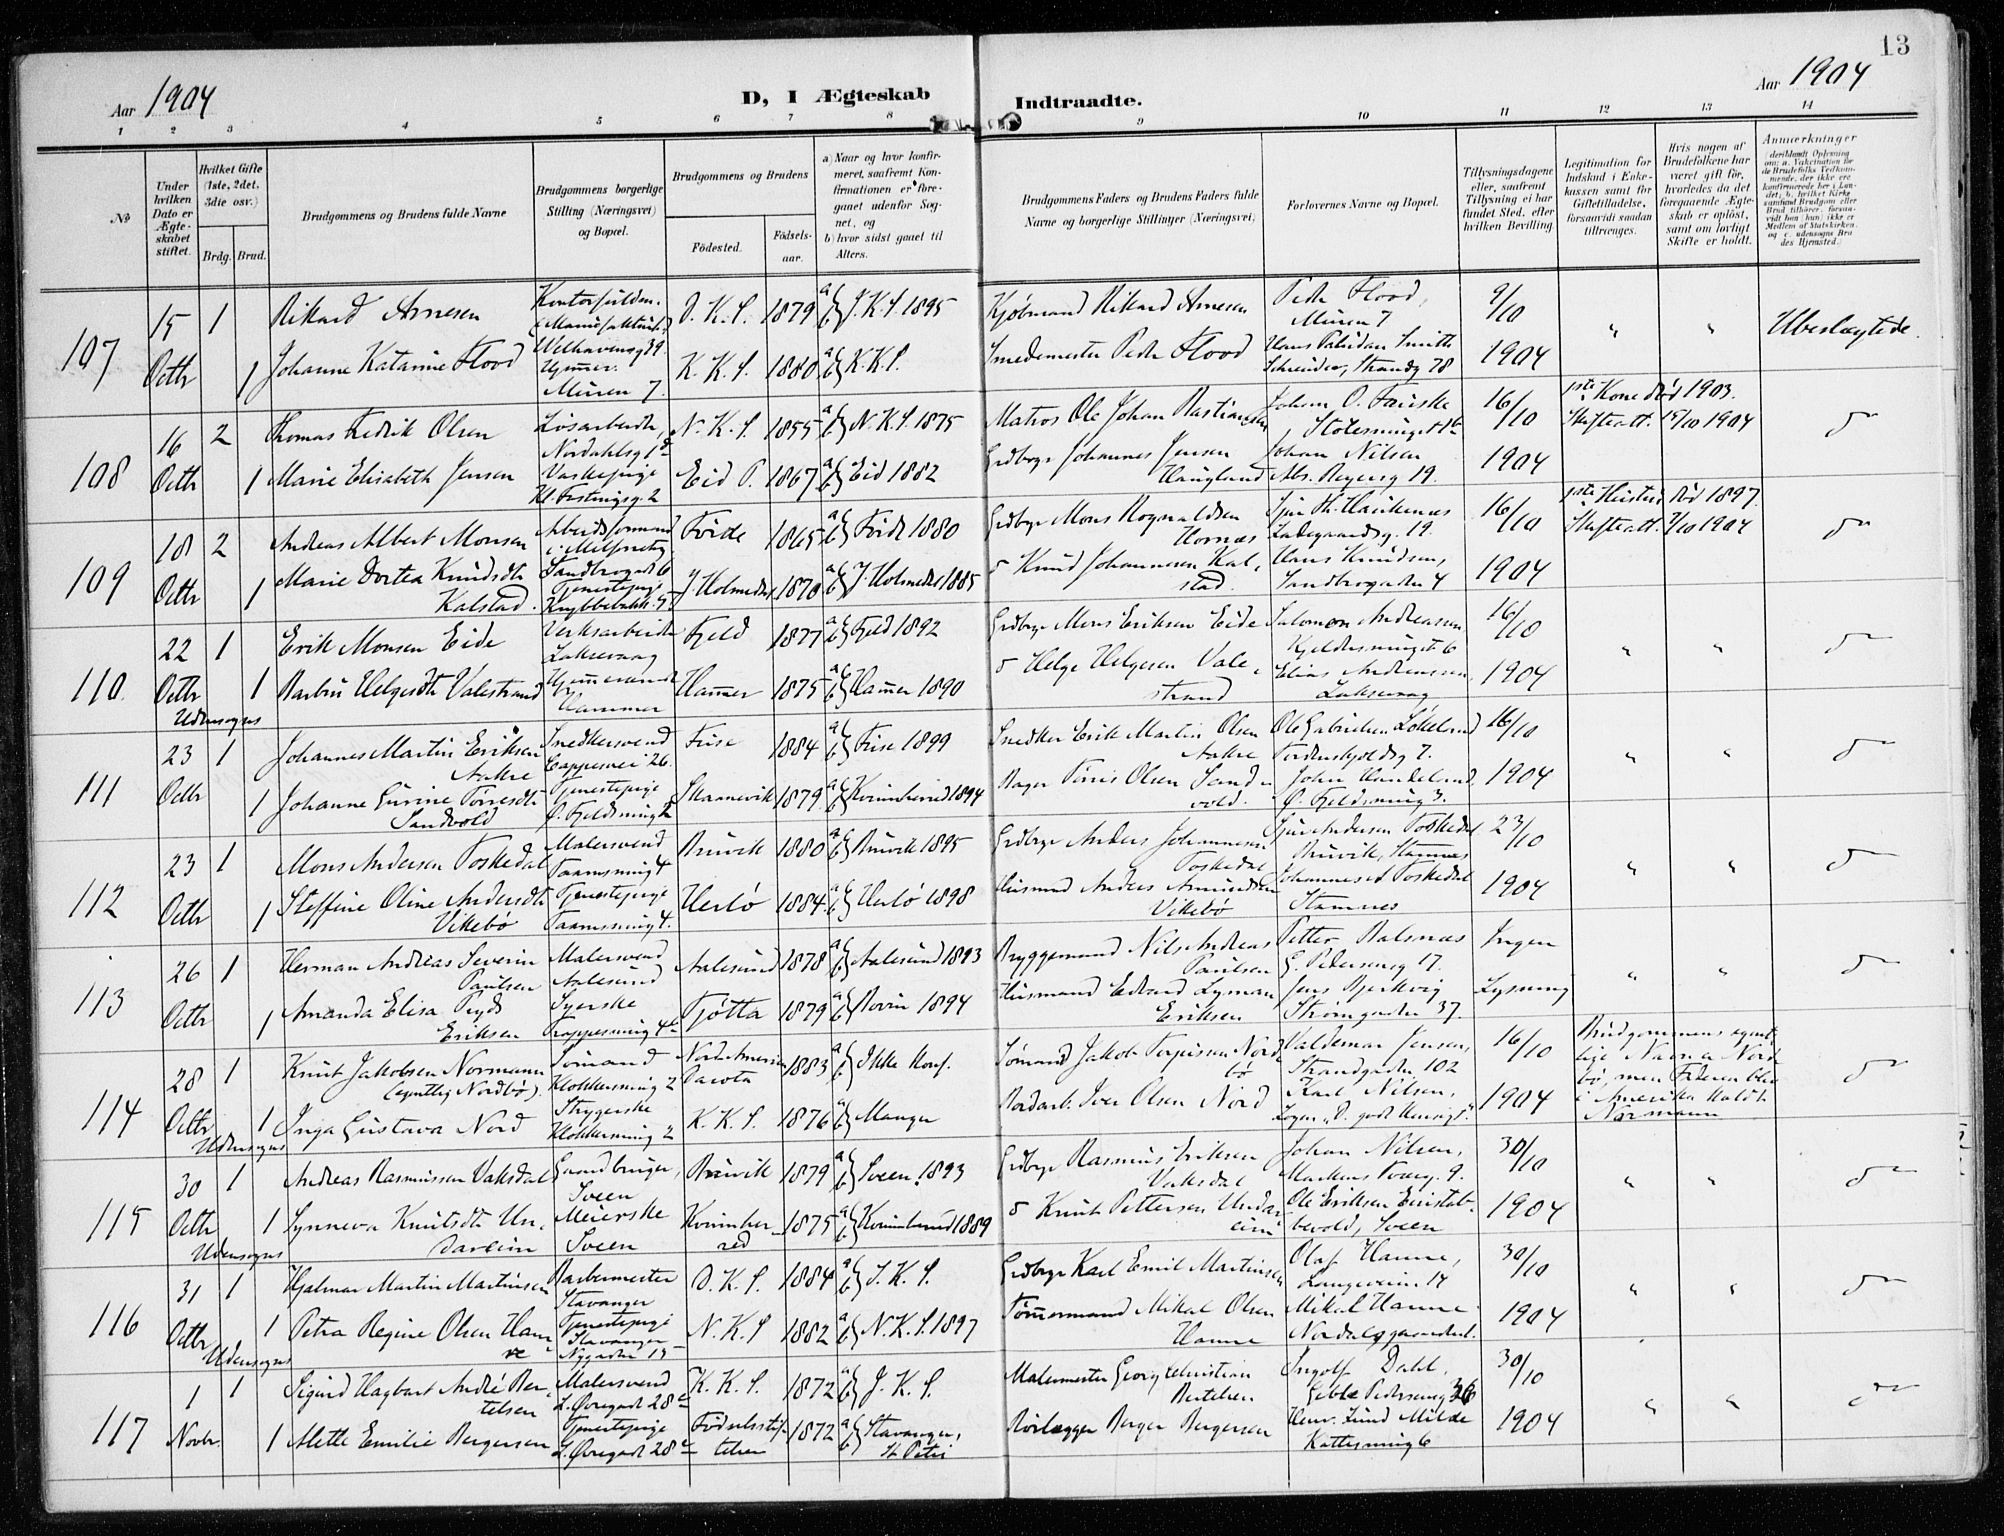 13
Aar 1904
D, I Ægteskab
Indtraadte.
Aar 1904
1 2 3 4 5 6 7 8 9 10 11 12 13 14
No
Under hvilken Dato er Ægteskabet stiftet.
Hvilket Gifte (1ste, 2det, 3die osv.)
Brdg. Brud.
Brudgommens og Brudens fulde Navne
Brudgommens borgerlige Stilling (Næringsvei) og Bopæl.
Brudgommens og Brudens
Fødested.
Fødsels-aar.
a) Naar og hvor konfirmeret, saafremt Konfirmationen er foregaaet udenfor Sognet, og
b) hvor sidst gaaet til Alters.
Brudgommens Faders og Brudens Faders fulde Navne og borgerlige Stillinger (Næringsvei)
Forlovernes Navne og Bopæl.
Tillysningsdagene eller, saafremt Tillysning ei har fundet Sted, efter hvilken Bevilling.
Legitimation for Indskud i Enkekassen samt for Giftetilladelse, forsaavidt saadan tiltrænges.
Hvis nogen af Brudefolkene har været gift før, hvorledes da det foregaaende Ægteskab er opløst, samt om lovligt Skifte er holdt.
Anmærkninger
107
15 Octbr 1
Rikard Arnesen
D. K. S. 1879 a b J. K. S 1895
Kjøbmand Rikard Arnesen
Peder Flood,
Muren 7
9/10 1904
" "
Ubeslægtede.
1 Johanne Katarine Flood
Welhavensg 39
Hjemmev.
Muren 7.
K. K. S. 1880 a b K.K.S.
Smedemester Peder Flood
Hans Paludan Smith
Strandg 78
108
16 Octbr 2
Thomas Fredrik Olsen
Løsarbeider,
Nordahlsg 1
N. K. S. 1855 a b N. K. S 1875
Matros Ole Johan Bastiansen
Johan O. Fauske
16/10 1904
1ste Kone død 1903.
Skifteatt. 15/10 1904
do
1 Marie Elisabeth Jensen
Vaskepige
Kl. Festningsg. 2
Eid P. 1867 a b Eid 1882
Grdbrgr Johannes Jensen
Haugland
Johan Nilsen
Abs. Beyersg 19.
109
18 Octbr 2
Andreas Albert Monsen
Arbeidsformand
Sandbrogaden 6
Førde 1865 a b Førde 1880
Grdbrgr Mons Rognaldsen
Hornæs
Ladegaardsg. 19.
16/10 1904
1ste Hustru død 1897.
Skifteatt. 7/10 1904
do
1 Marie Dortea Knudsdtr
Kalstad.
Tjenestepige
J. Holmedal 1870 a b J. Holmedal 1885
do Knud Johannesen Kalstad.
Hans Knudsen,
Sandbrogaden 4
110.
22 Octbr 1
Udensogns
Erik Monsen Eide
Verksarbeider
Laksevaag
Fjeld 1877 a b Fjeld 1892
Grdbrgr Mons Eriksen Eide
Salomon Andreassen
Kjeldersmuget 6
16/10 1904
" "
do
1 Barbru Helgesdtr Valestrand
Hjemmeværende
Hammer
Hamer 1875 a b Hamer 1890
do Helge Helgesen Valestrand
Elias Andreassen,
Laksevaag
111
23 Octbr 1
Johannes Martin Eriksen
Aakre
Snedkersvend
Cappesvei 26.
Fuse 1884 a b Fuse 1899
Snedker Erik Martin Olsen
Aakre
Ole Gabrielsen Løkeland
Tordenskjoldsg 7.
16/10 1904
" "
do
1 Johanne Gurine Tørresdtr
Sandvold
Tjenestepige
Ø. Fjeldsmug
Skaanevik 1879 a b Kvinherred 1894
Bager Tørris Olsen Sandvold.
John Handeland,
Ø. Fjeldsmug 3.
112
23 Octbr 1
Mons Andersen Toskedal
Malersvend
Taarnsmug 4
Bruvik 1880 a b Bruvik 1895
Grdbrgr Anders Johannesen
Toskedal
Sjur Andersen Toskedal
Bruvik, Stamnes
23/10 1904
" "
do
1 Steffine Oline Andersdtr
Vikebø
Tjenestepige
Taarnsmug 4.
Herlø 1884 a b Herlø 1898
Husmand Anders Amundsen
Vikebø
Johannes Toskedal
Stamnes
113
26 Octbr 1
Herman Andreas Severin
Paulsen
Malersvend
Aalesund
Aalesund 1878 a b Aalesund 1893
Bryggemand Nils Andreas
Paulsen
Petter Balsnæs
G. Pedersensg 17.
Ingen
Lysning
" "
do
1 Amanda Elisa Pryds
Eriksen
Syerske
Trappesmug 4
Tjøtta 1879 a b 1894
Husmand Edvard Lyman
Eriksen
Jens Bjerkvig
Strømgaden 37.
114
28 Octbr 1
Udensogns
Knut Jakobsen Normann
(egentlig Nordbø).
Sømand
Klokkersmug 2
Nordamerika
Dacota
1883 a b Ikke konf.
Sømand Jakob Torgissen Nordbø
Valdemar Jensen,
Strandgaden 102
16/10 1904
Brudgommens egentlige Navn er Nordbø, men Faderen blev i Amerika kaldt Normann
do
1 Inga Gustava Nord
Strygerske
Klokkersmug 2
K. K. S. 1876 a b Manger
Iver Olsen Nord
Karl Nilsen,
115
30 Octbr 1
Udensogns
Andreas Rasmussen Vaksdal
Gaardbruger,
Sveen
Bruvik 1879 a b Sveen 1893
Grdbrgr Rasmus Eriksen
Vaksdal
Johan Nilsen,
Markens Tverg. 9.
30/10 1904
" "
do
1 Synneva Knutsdtr Undareim
Meierske
Sveen
Kvinherred 1875 a b Kvinherred 1889
do Knut Pettersen Undareim
Ole Eriksen
Sveen
116
31 Octbr 1
Udensogns
Hjalmar Martin Martinsen
Barbermester
Stavanger
D. K. S. 1884 a b J. K. S.
Grdbrgr Karl Emil Martinsen
Olaf Hanne,
Langeveien 14
30/10 1904
" "
do
1 Petra Regine Olsen Hanne
Tjenestepige
Stavanger
Nygaden 15
N. K. S 1882 a b N. K. S. 1897
Tømmermand Mikal Olsen
Hanne
Mikal Hanne
117
1 Novbr. 1
Sigurd Hagbart André Bertelsen
Malersvend
L. Øvregade 28
K. K. S. 1872 a b J. K. S.
Malermester Georg Christian
Bertelsen
Ingolf Dahl,
Gebls Pedersensg 36
30/10 1904
" "
do
1 Alette Emilie Bergersen
Tjenestepige
L. Øvregade 28
Fødselsstiftelsen 1872 a b Stavanger,
St Petri
Rørlægger Berger Bergersen
Henr. Lund Milde
Kattesmug 6